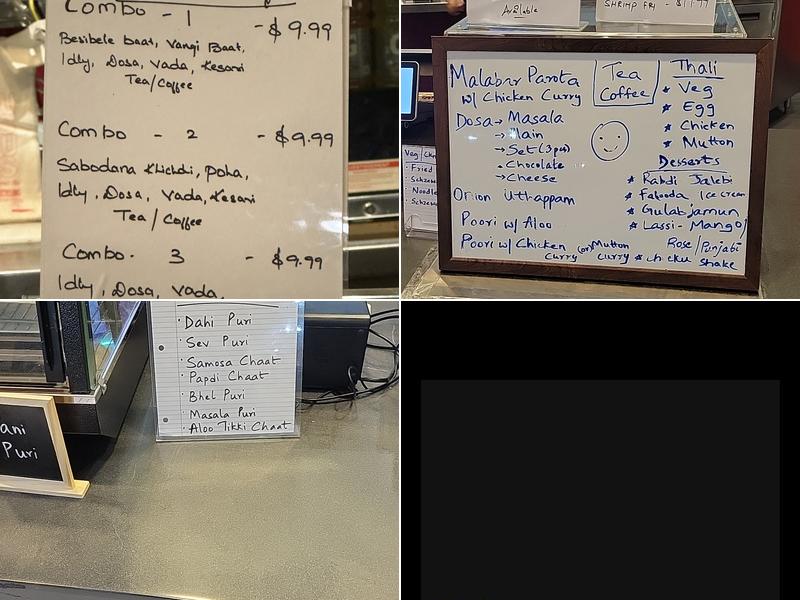 Combo - 1 - $9.99
Besibele baat, Vangi Baat,
Idly, Dosa, Vada, Kesari
Tea/Coffee
Combo - 2 - $9.99
Sabodana Khichdi, Poha,
Idly, Dosa, Vada, Kesari
Tea / Coffee
Combo. 3 - $9.99
Idly, Dosa, Vada,
Available
SHRIMP FRI - $11.99
Malabar Parota
w/ Chicken Curry
Dosa → Masala
→ Plain
→ Set (3 pcs)
. Chocolate
→ Cheese
Onion Uthappam
Poori w/ Aloo
Poori w/ Chicken (or) Mutton
Curry Curry
Tea
Coffee
Thali
* Veg
* Egg
* Chicken
* Mutton
Desserts
* Rabdi Jalebi
* Falooda Ice cream
* Gulab jamun
* Lassi - Mango/
Rose/Punjabi
* chcku shake
Veg
Fried
Noodle
ani
Puri
· Dahi Puri
· Sev Puri
· Samosa Chaat
· Papdi Chaat
· Bhel Puri
· Masala Puri
· Aloo Tikki Chaat